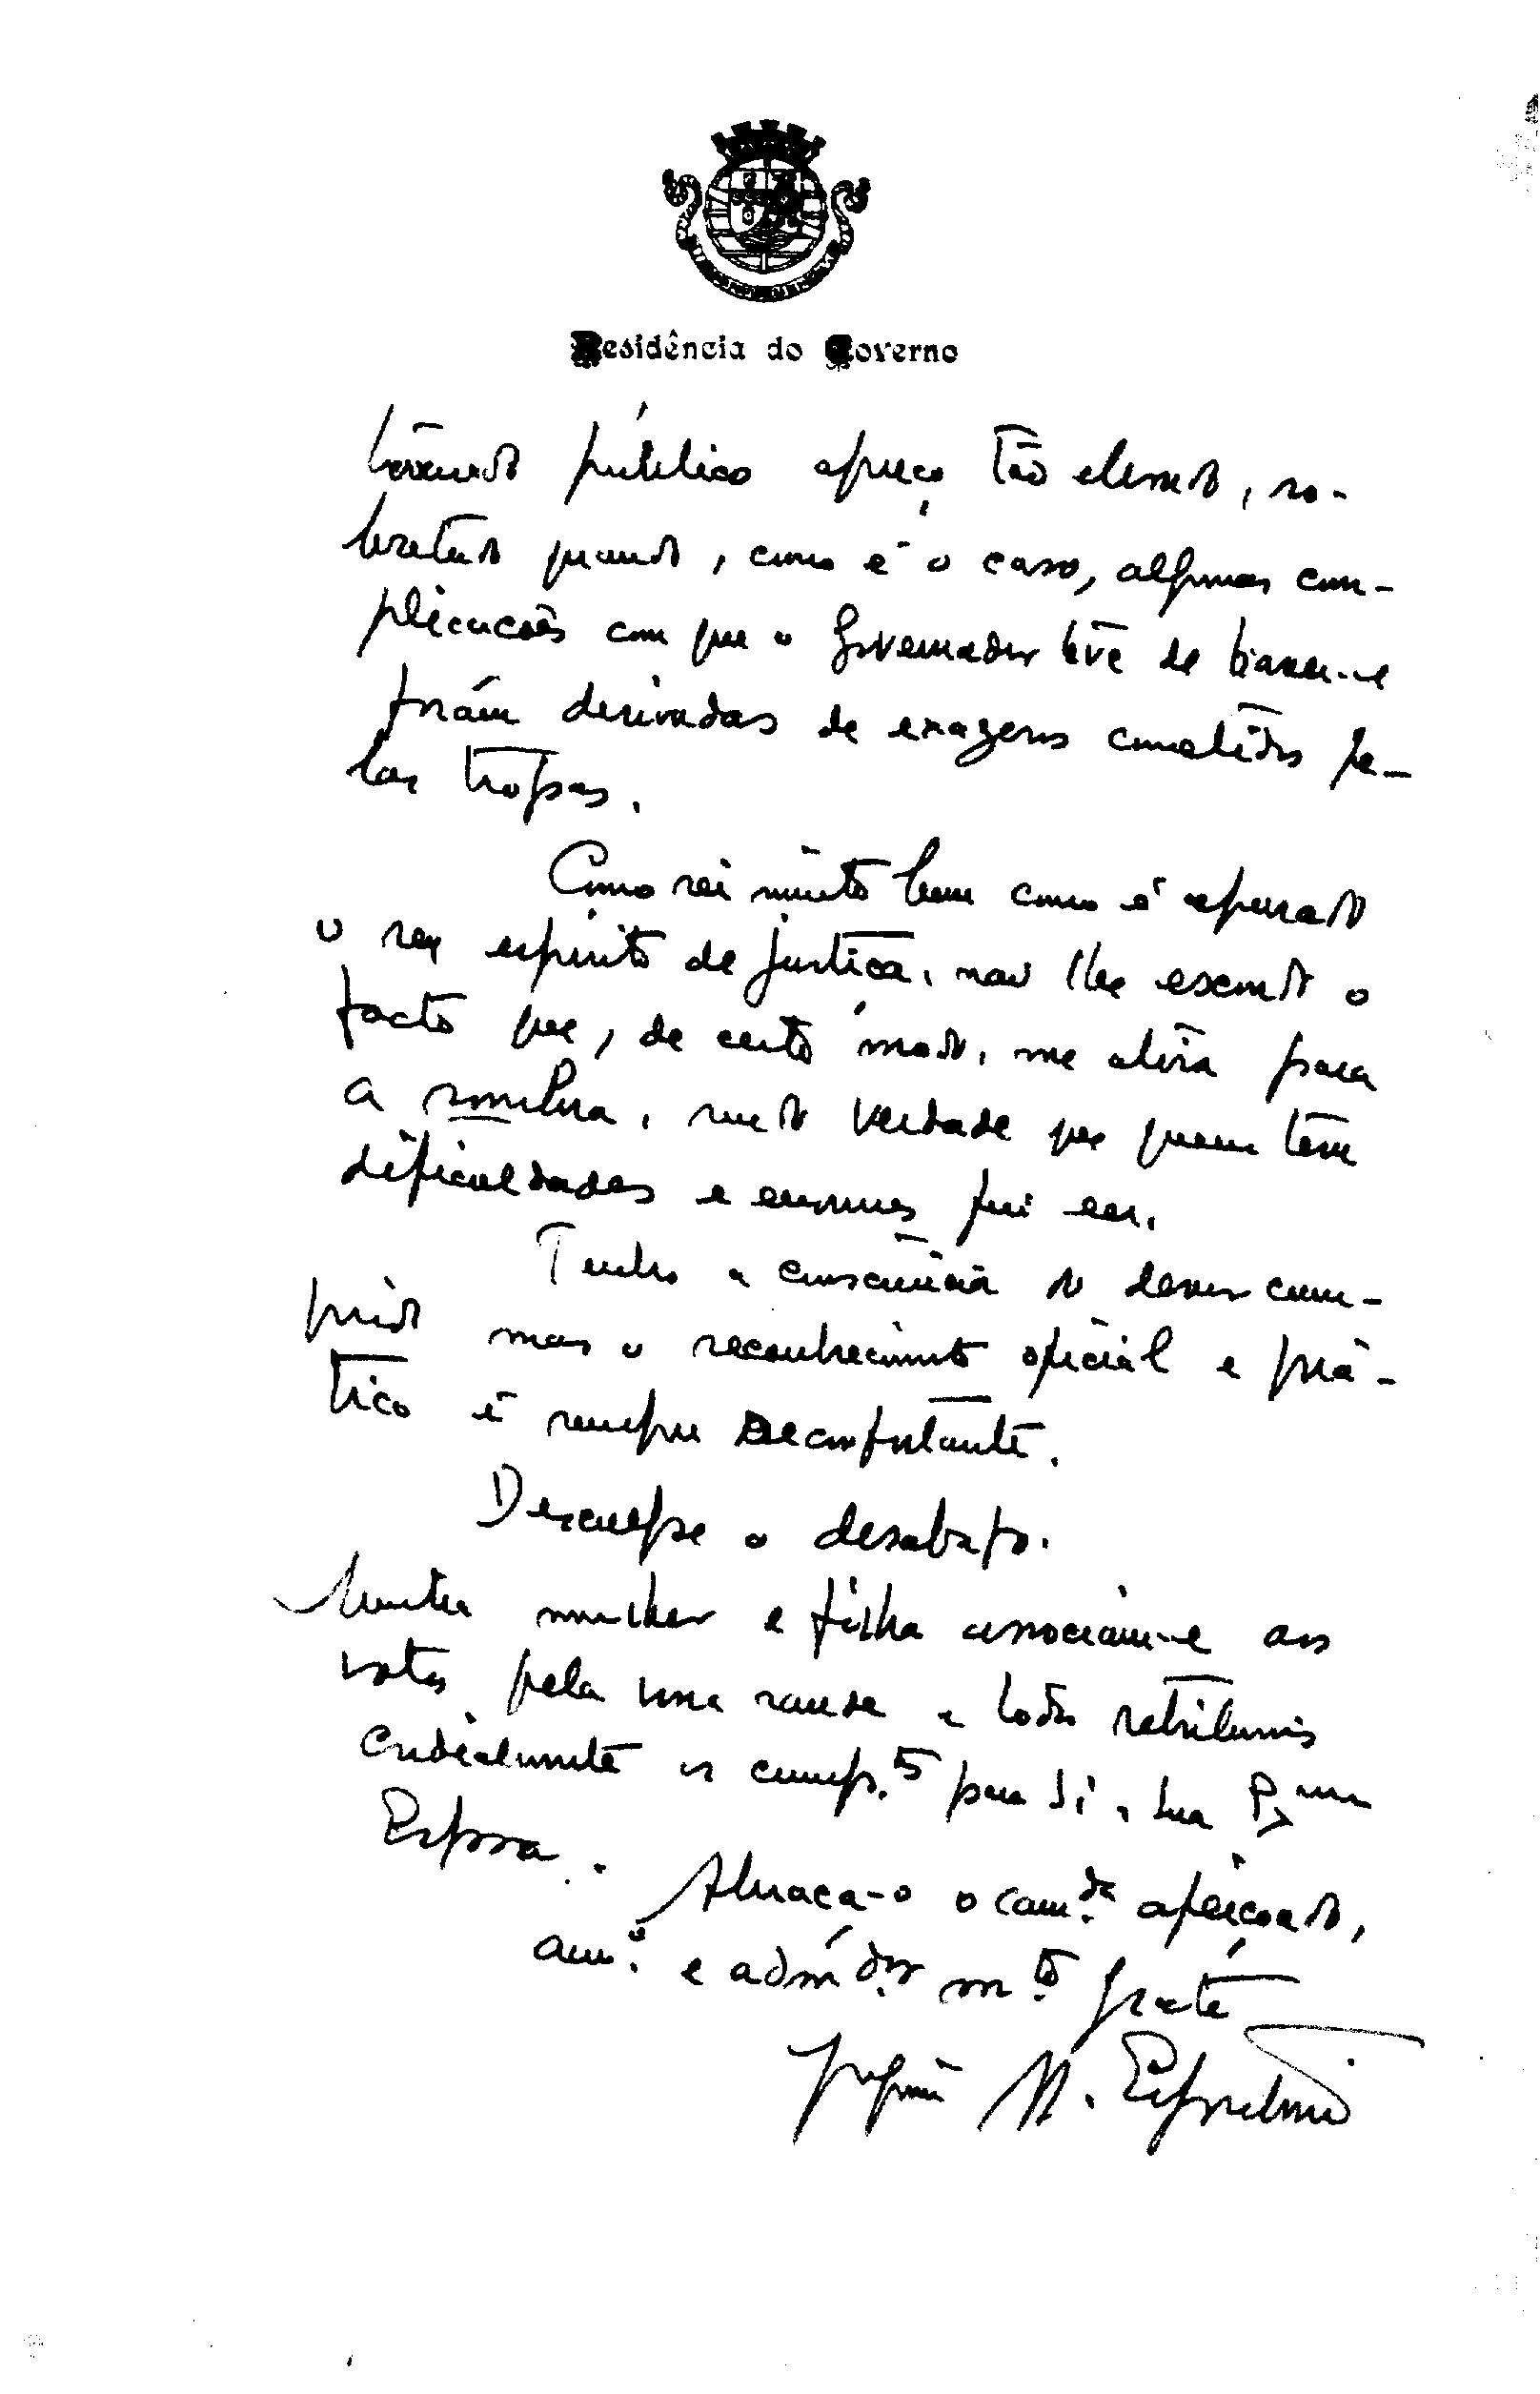 Residência do Governo
tornando público apreço tão elevado, so-
bretudo quando, como é o caso, algumas com-
plicações com que o Governador teve de haver-se
foram derivadas de exageros cometidos pe-
las tropas.
Como sei muito bem como é apurado
o seu espírito de justiça, não lhe escondo o
facto que, de certo modo, me atira para
a sombra, sendo verdade que quem tem
dificuldades e enormes fui eu.
Tenho a consciência do dever cum-
prido mas o reconhecimento oficial e prá-
tico é sempre reconfortante.
Desculpe o desabafo.
Minha mulher e filha associam-se aos
votos pela vossa saúde e todos retribuimos
cordialmente os cump.tos para si e sua Exma
Esposa. Abraça-o o cam.da afeiçoado,
am.o e adm.dor m.to grato
M.